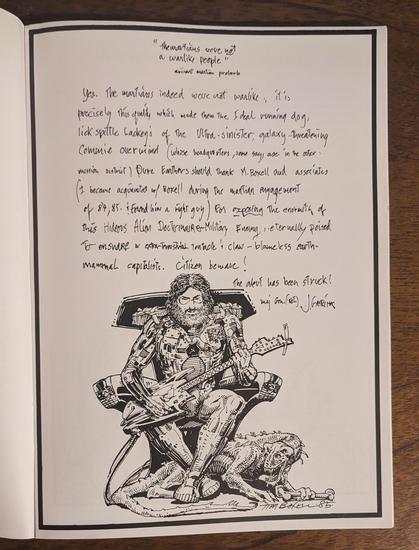 "the martians were not
a warlike people"
ancient martian proverb
Yes. The martians indeed were not warlike, it is
precisely this quality which made them the Ideal running dog,
lick-spittle Lackeys of the Ultra-sinister, galaxy-threatening
Commie overmind (whose headquarters, some say, are in the
) Pure Earthers should thank M. Boxell and associates
(I became acquainted w/ Boxell during the martian engagement
of 84, 85. & found him a right guy) For exposing the enormity of
this Hideous Alien Doctrinaire-Military Enemy, eternally poised
To ensnare w extra-terrestrial tentacle & claw - blameless earth-
mammal capitalists. Citizen beware!
The alert has been struck!
my son (etc) J Garcia
Tim Boxell 85